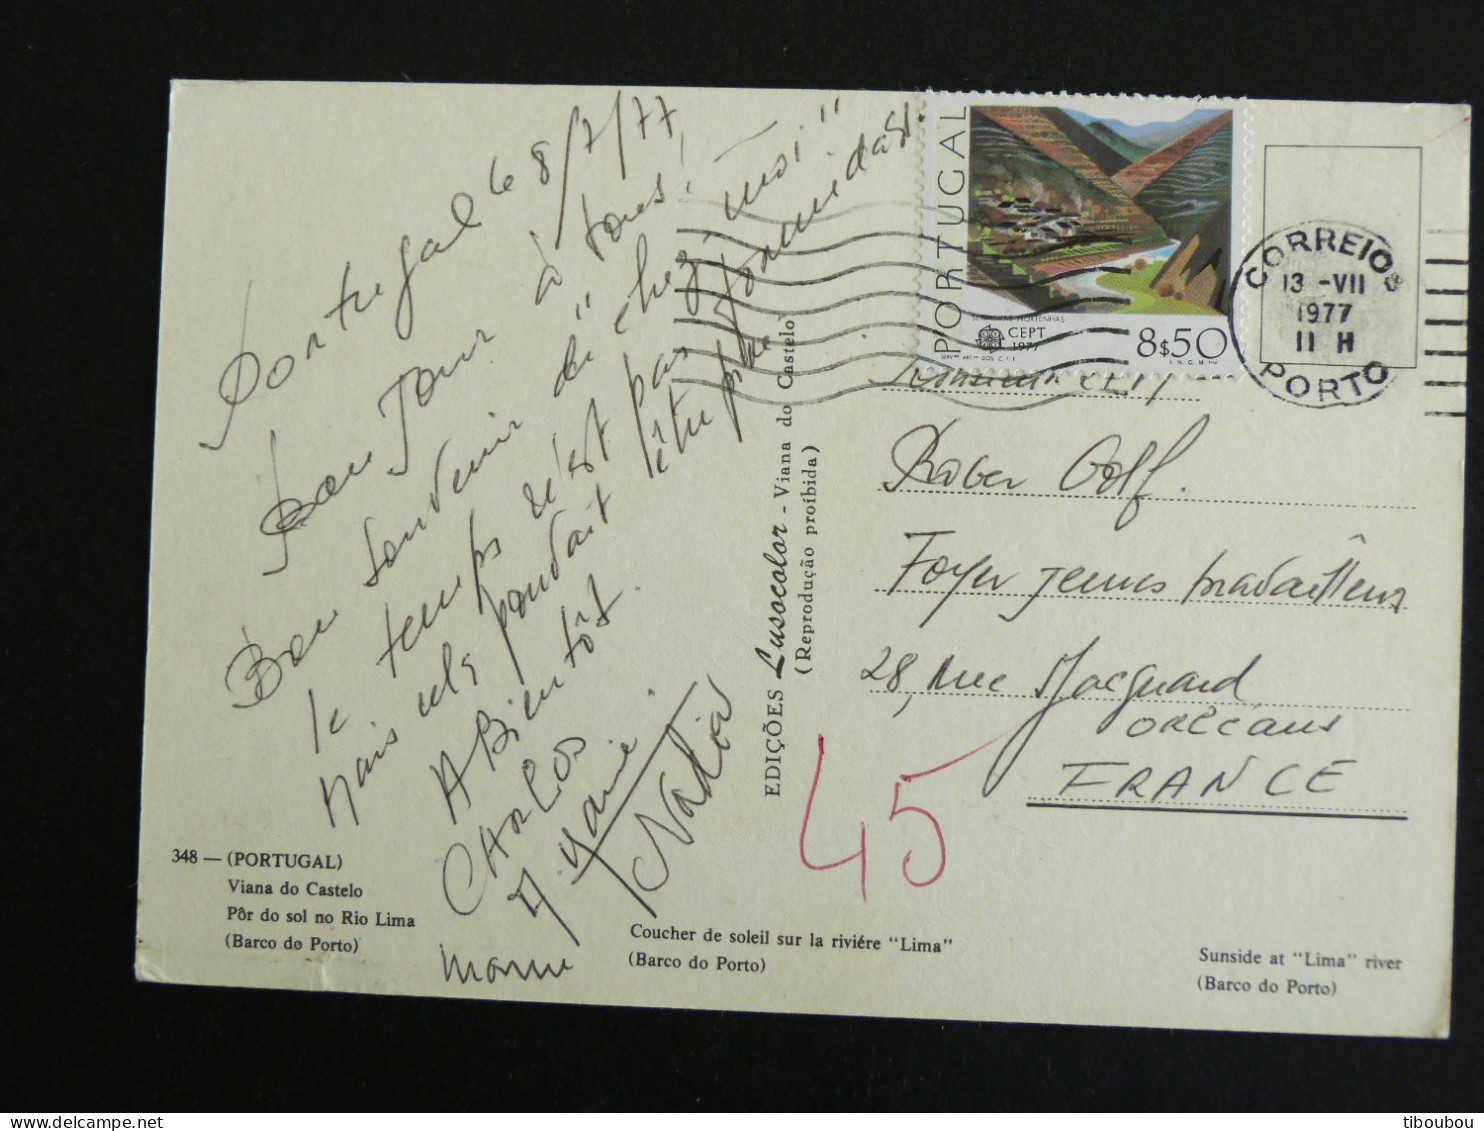 Portugal le 8/7/77
bon Jour à tous!
Bon souvenir de "chez-moi"
le temps n'est pas formidable
mais cela pourrait être pire
A Bientôt.
CARLOS
Marie
Nadia
348 — (PORTUGAL)
Viana do Castelo
Pôr do sol no Rio Lima
(Barco do Porto)
Coucher de soleil sur la riviére "Lima"
(Barco do Porto)
Sunside at "Lima" river
(Barco do Porto)
EDIÇÕES Lusocolor - Viana do Castelo
(Reprodução proibida)
PORTUGAL
CEPT
1977
8$50
CORREIOS
13 -VII
1977
11 H
PORTO
Foyer jeunes travailleurs
28, rue Jacquard
ORLÉANS
FRANCE
45
tiboubou